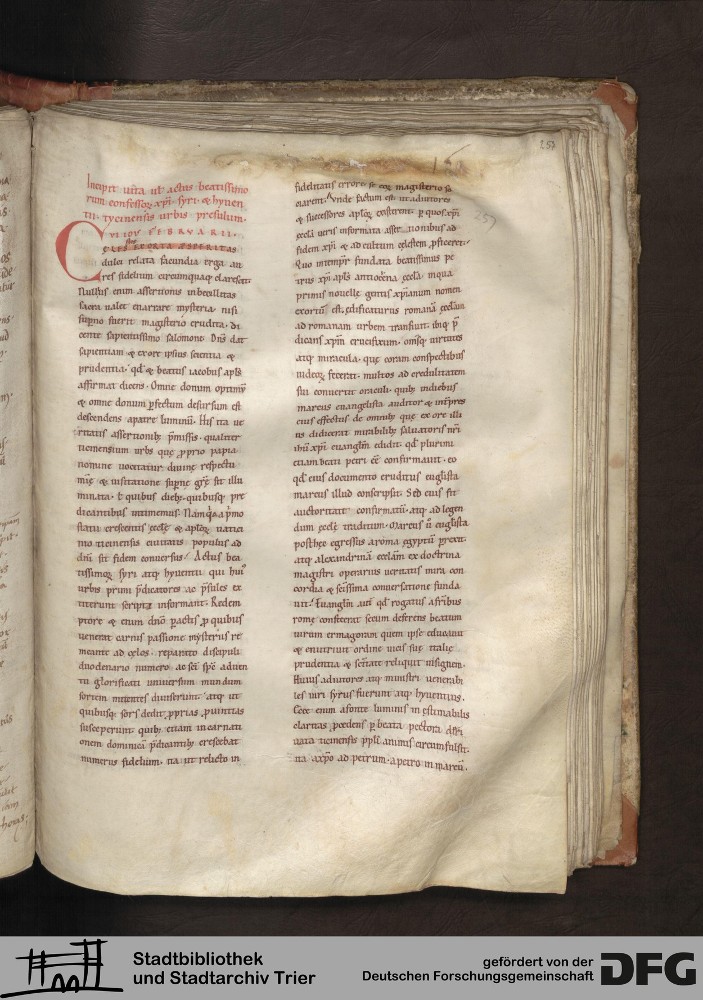 257
257
Incipit uita ul' actus beatissimo
rum confessoꝝ xp̄i syri & hyuen
tii tycinensis urbis presulum.
CVIIQV FEBRVARII.
dulci relata facundia erga au
res fidelium circumquaq; claresceret
Nullius enim assertionis inbecillitas
sacra ualet enarrare mysteria. nisi
supno fuerit magisterio erudita. di
cente sapientissimo salomone. Dn̄s dat
sapientiam & exore ipsius scientia &
prudentia. qd' & beatus iacobus apl's
affirmat dicens. Omne donum optimū
& omne donum pfectum desursum est
descendens apatre luminū. His ita ue
ritatis assertionib; p̄missis. qualiter
ticinensium urbs que pprio papia
nomine uocitatur diuine respectu
mie & uisitatione supne gr̄e sit illu
minata. l' quibus dieb; quibusq; pre
dicantibus intimemus. Namq;
statu crescentis & aploꝝ
mo ticinensis ciuitatis populus ad
dn̄m sit fidem conuersus. Actus bea
tissimoꝝ syri atq; hyuentii qui hui'
urbis primi p̄dicatores ac p̄sules ex
titerunt scripta informant. Redem
ptore & enim dn̄o quibus
uenerat carnis passione mysteriis re
meante ad celos. reparato discipuli
duodenario numero ac sc̄i sp̄c aduen
tu glorificati uniuersum mundum
sortem mittentes diuiserunt. atq; ut
quibusq; sors dedit pprias puintias
susceperunt. quib; etiam incarnati
onem dominicā p̄dicantib; crescebat
numerus fidelium. ita ut relicto in
fidelitatis errore se eoꝝ magisterio so
ciarent. Vnde factum est ut adiutores
& successores aploꝝ existerent. p quos xp̄i
uera informata assertionibus ad
fidem xp̄i & ad cultum celestem pficeret.
Quo intempr fundata beatissimus pe
trus xp̄i apl's antiocena eccl'a. inqua
primus nouelle gentis xp̄ianum nomen
exortū est. edificaturus romanā eccl'am
ad romanam urbem transiuit. ibiq; p̄
dicans xp̄m crucifixum. omisq; uirtutes
atq; miracula. que coram conspectibus
iudeoꝝ fecerat. multos ad credulitatem
sui conuertit oraculi. quib; indiebus
marcus euangelista auditor & int̄pres
eius effectus de omnib; que ex ore illi
us didicerat mirabilib; saluatoris nr̄i
ih̄u xp̄i euangl'm edidit. qd' plurimi
etiam beati petri cē confirmauit. eo
qd' eius documento eruditus eugl'ista
marcus illud conscripsit. Sed eius sit
auctoritate confirmatū. atq; ad legen
dum eccl'e traditum. Marcus ū eugl'ista
posthec egressus aroma egyptū petiit.
atq; alexandrinā eccl'am ex doctrina
magistri operarius ueritatis mira con
cordia & sc̄issima conuersatione funda
uit. Euangl'm aut̄ qd' rogatus afr̄ibus
rome conscripserat secum deferens beatum
uirum ermagoram quem ipse educauit
& enutriuit ordine uicis sue italie
prudentia & sc̄itate reliquit insignem.
Huius adiutores atq; ministri uenerabi
les uiri syrus fuerunt atq; hyuentius.
Ecce enim afonte luminis inestimabilis
claritas pcedens p beata pectora diffu
uata ticinensis pp̄li animis circumfulsit.
ita axp̄o ad petrum. apetro in marcū.
Stadtbibliothek
und Stadtarchiv Trier
gefördert von der
Deutschen Forschungsgemeinschaft
DFG